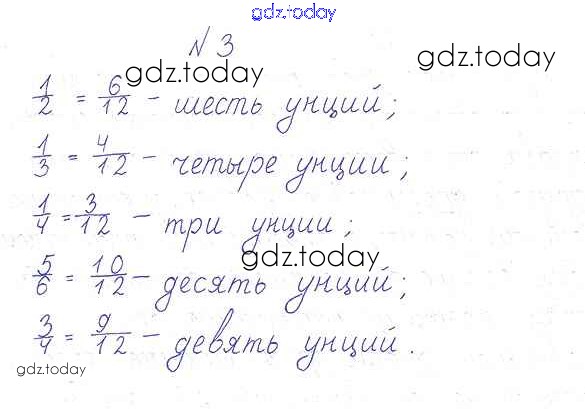 gdz.today
N 3
gdz.today
gdz.today
1/2 = 6/12 - шесть унций;
1/3 = 4/12 - четыре унции;
1/4 = 3/12 - три унции;
gdz.today
5/6 = 10/12 - десять унций;
3/4 = 9/12 - девять унций.
gdz.today